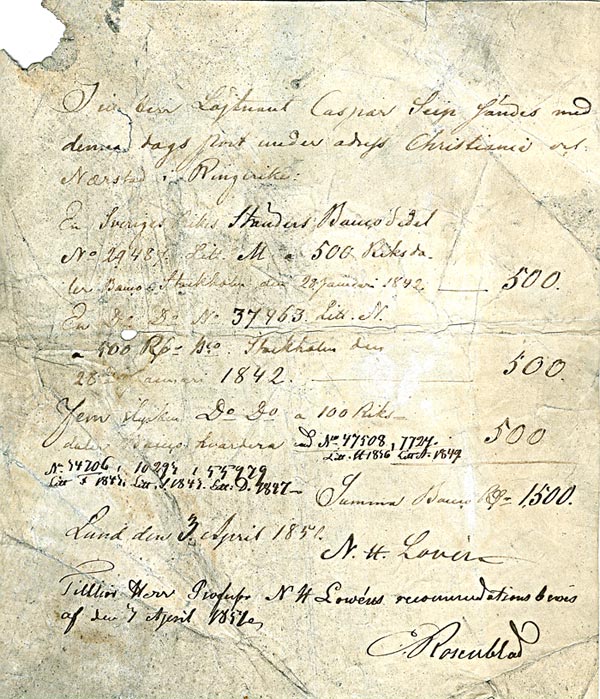 Till Herr Löjtnant Caspar Seip sändes med
denna dags post under adress Christiania och
Nærstad i Ringerike:
En Sveriges Rikes Ständers Banco Sedel
No 2948 Litt. M a 500 Riksda-
ler Banco. Stockholm den 20 Januari 1842. 500.
En Do Do No 37963. Litt. N.
a 500 Rdr Bco. Stockholm den
28 Januari 1842. 500.
Fem stycken Do Do a 100 Riks-
daler Banco hvardera No 47508, 7727. 500
Litt. M 1836 Litt. A. 1849.
No 34706, 10294, 55979
Litt. 1845. Litt. 1845. Litt. D. 1847
Summa Banco Rdr 1,500.
Lund den 3 April 1851.
N. H. Lovén
Tillhör Herr Professor N H Lovéns recommendationsbref
af den 7 April 1851.
C. Rosenblad